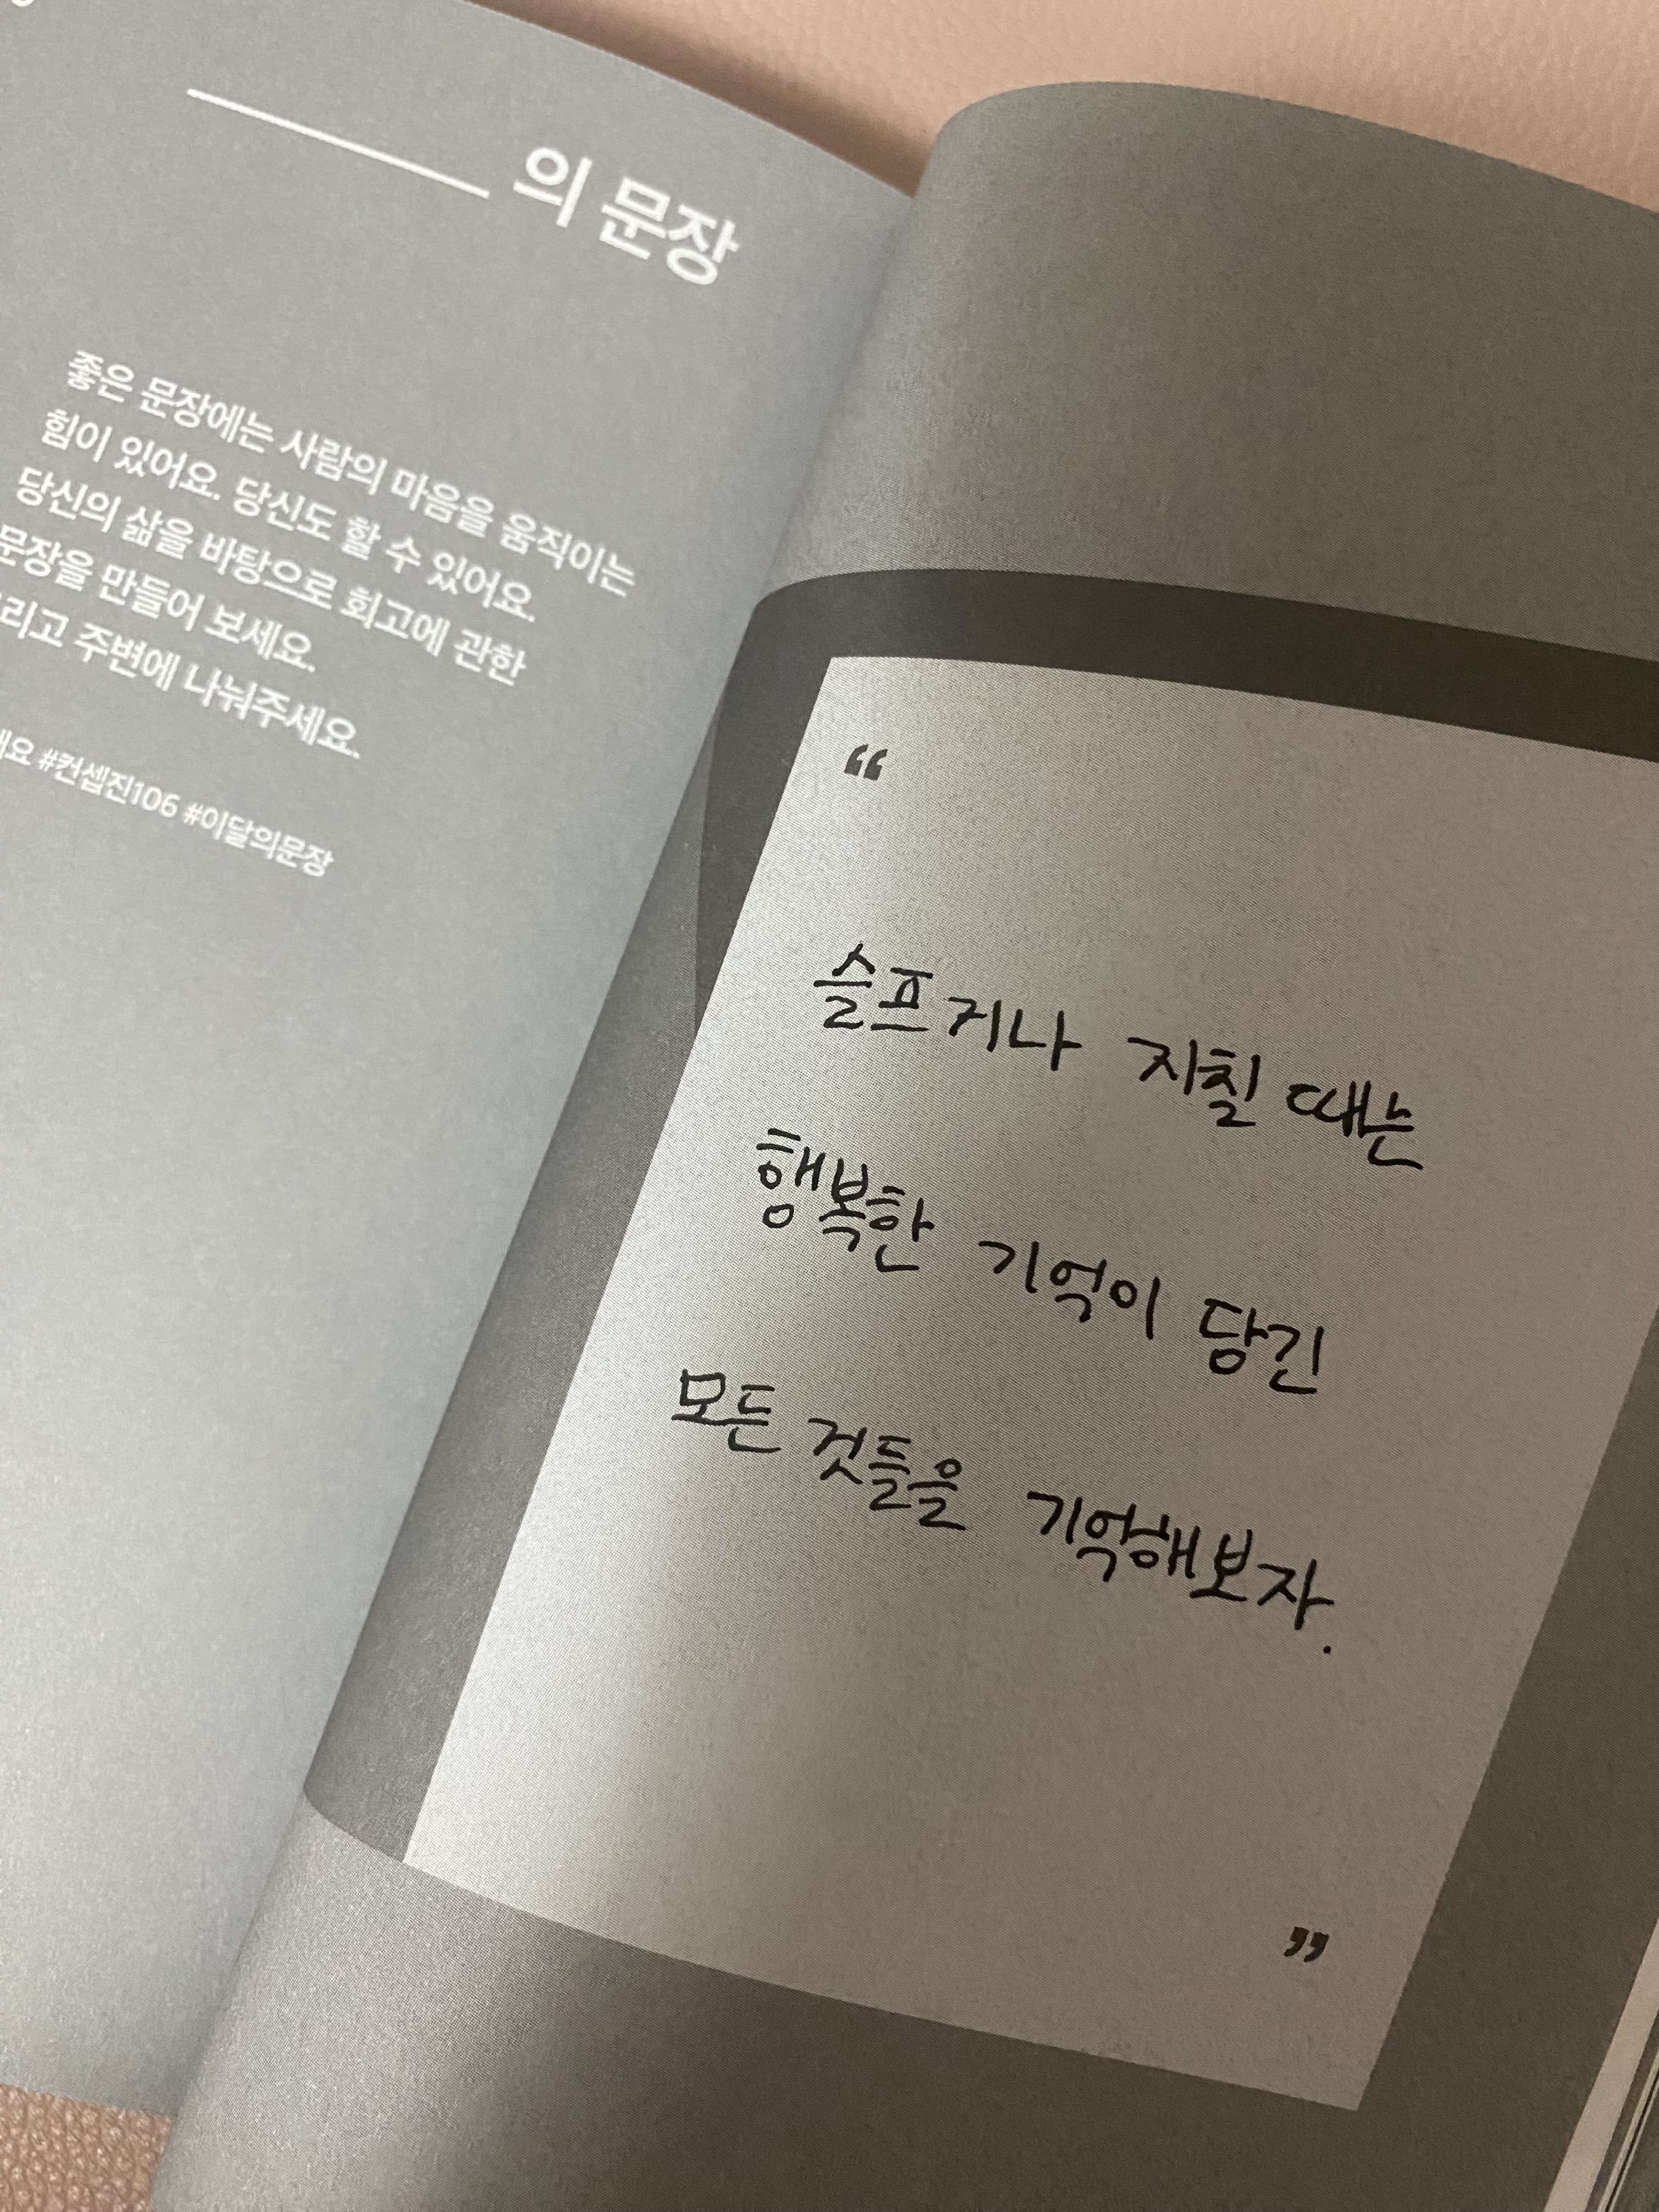 의 문장
좋은 문장에는 사람의 마음을 움직이는
힘이 있어요. 당신도 할 수 있어요.
당신의 삶을 바탕으로 회고에 관한
문장을 만들어 보세요.
주변에 나눠주세요.
#컨셉진106 #이달의문장
“
슬프거나 지칠 때는
행복한 기억이 담긴
모든 것들을 기억해보자.
”